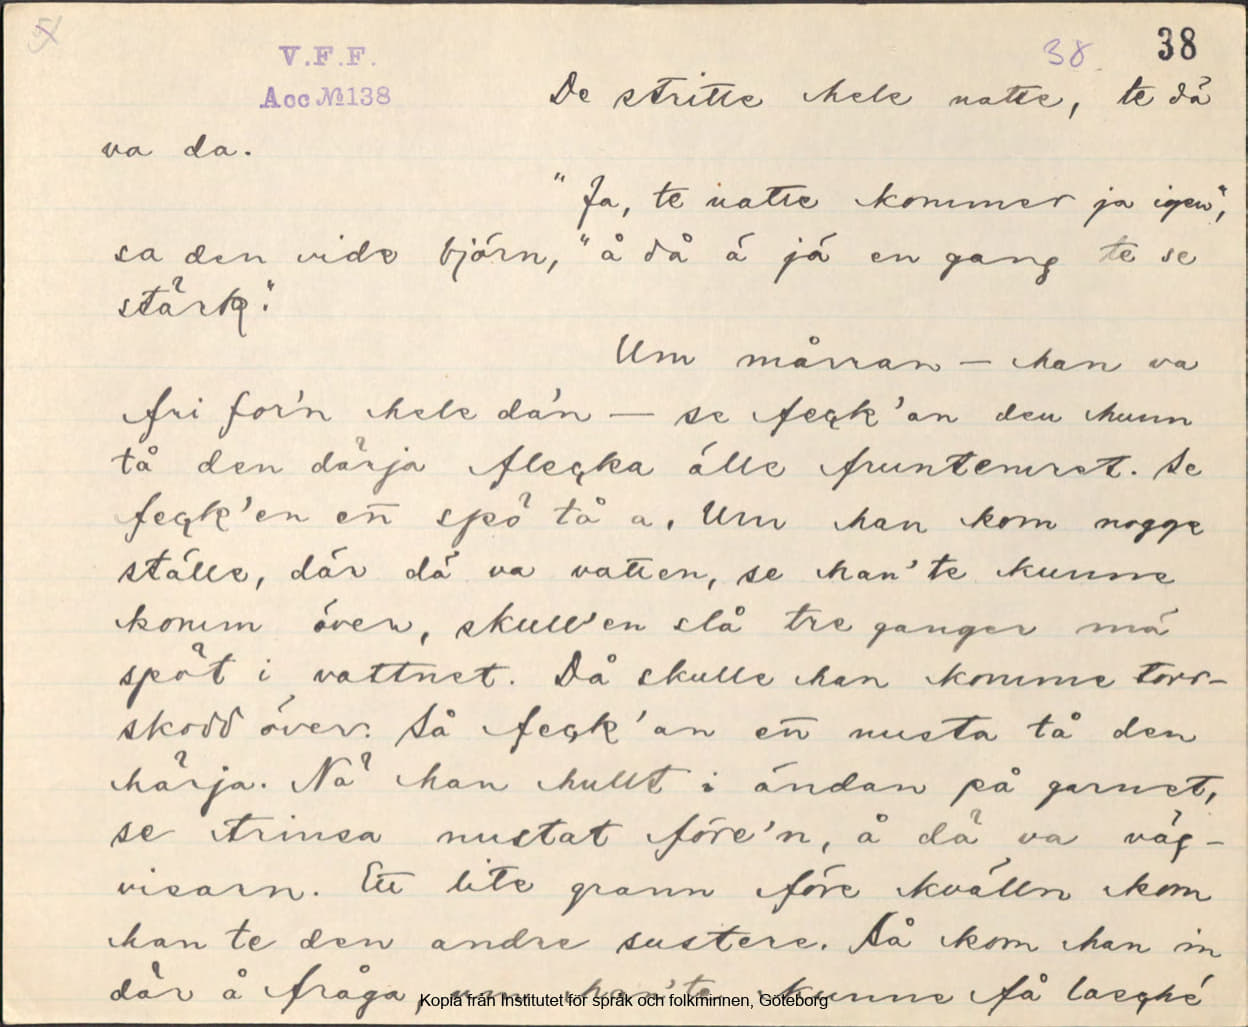 V.F.F.
Acc №138
38
38
De stritte hele natte, te dä
va da.
"Ja, te natte kommer ja igen",
sa den vide björn, "å då ä jä en gang te se
stärk".
Um mårran — han va
fri for'n hele da'n — se feçk'an den hunn
tå den därja fleçka älle fruntemret. Se
feçk'en en̄ spö tå a. Um han kom nogge
ställe, där dä va vatten, se han'te kunne
komm över, skull'en slå tre ganger mä
spöt i vattnet. Då skulle han komme torr-
skodd över. Så feçk'an en̄ nusta tå den
härja. Nä han hullt i ändan på garnet,
se trinsa nustat före'n, å dä va väg-
visarn. Ett lite grann före kvälln kom
han te den andre sustere. Så kom han in
där å fråga, um han'te kunne få
Kopia från Institutet för språk och folkminnen, Göteborg